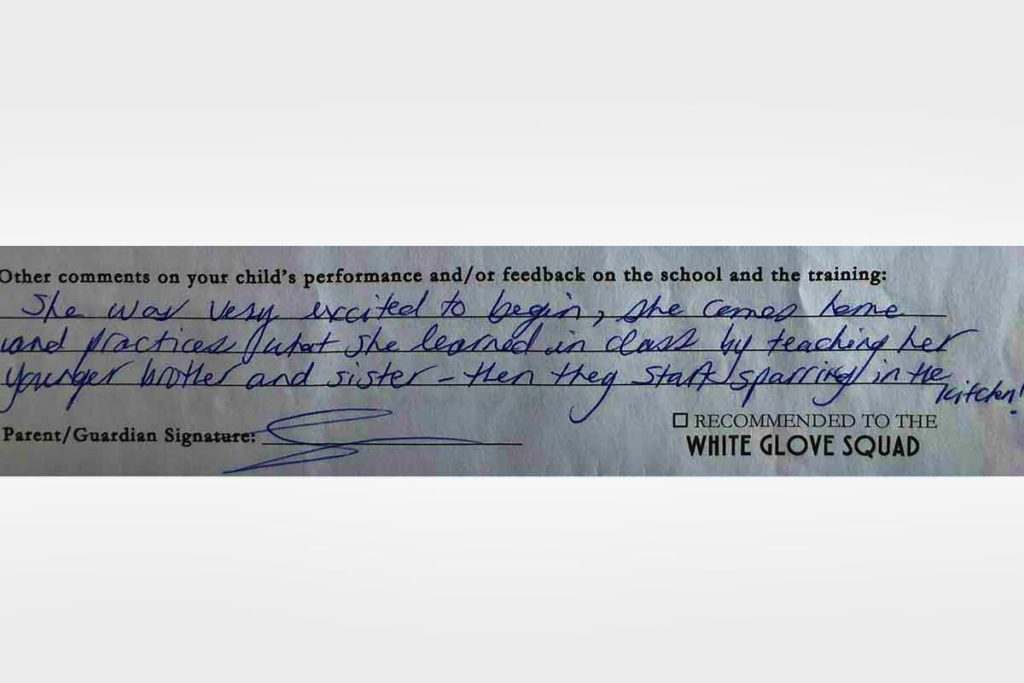 Other comments on your child's performance and/or feedback on the school and the training:
She was very excited to begin, she comes home
and practices what she learned in class by teaching her
younger brother and sister - then they start sparring in the
kitchen!
Parent/Guardian Signature:
☐ RECOMMENDED TO THE
WHITE GLOVE SQUAD